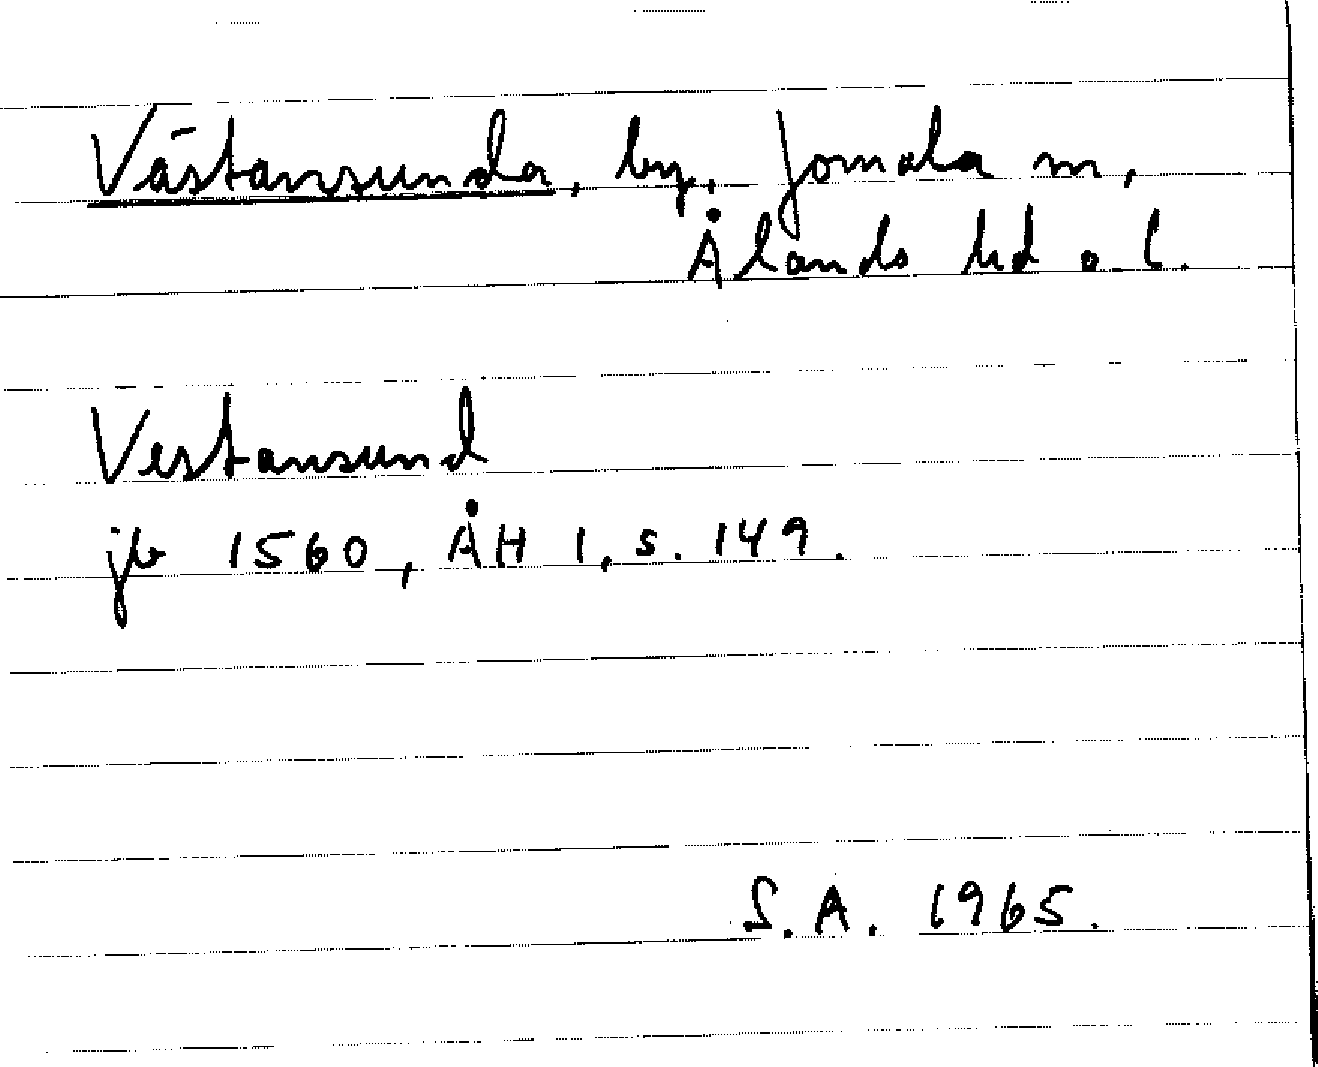 Västansunda, by, Jomala sn,
Ålands hd o. l.
Vestansund
jb 1560, ÅH 1, s. 149.
S.A. 1965.